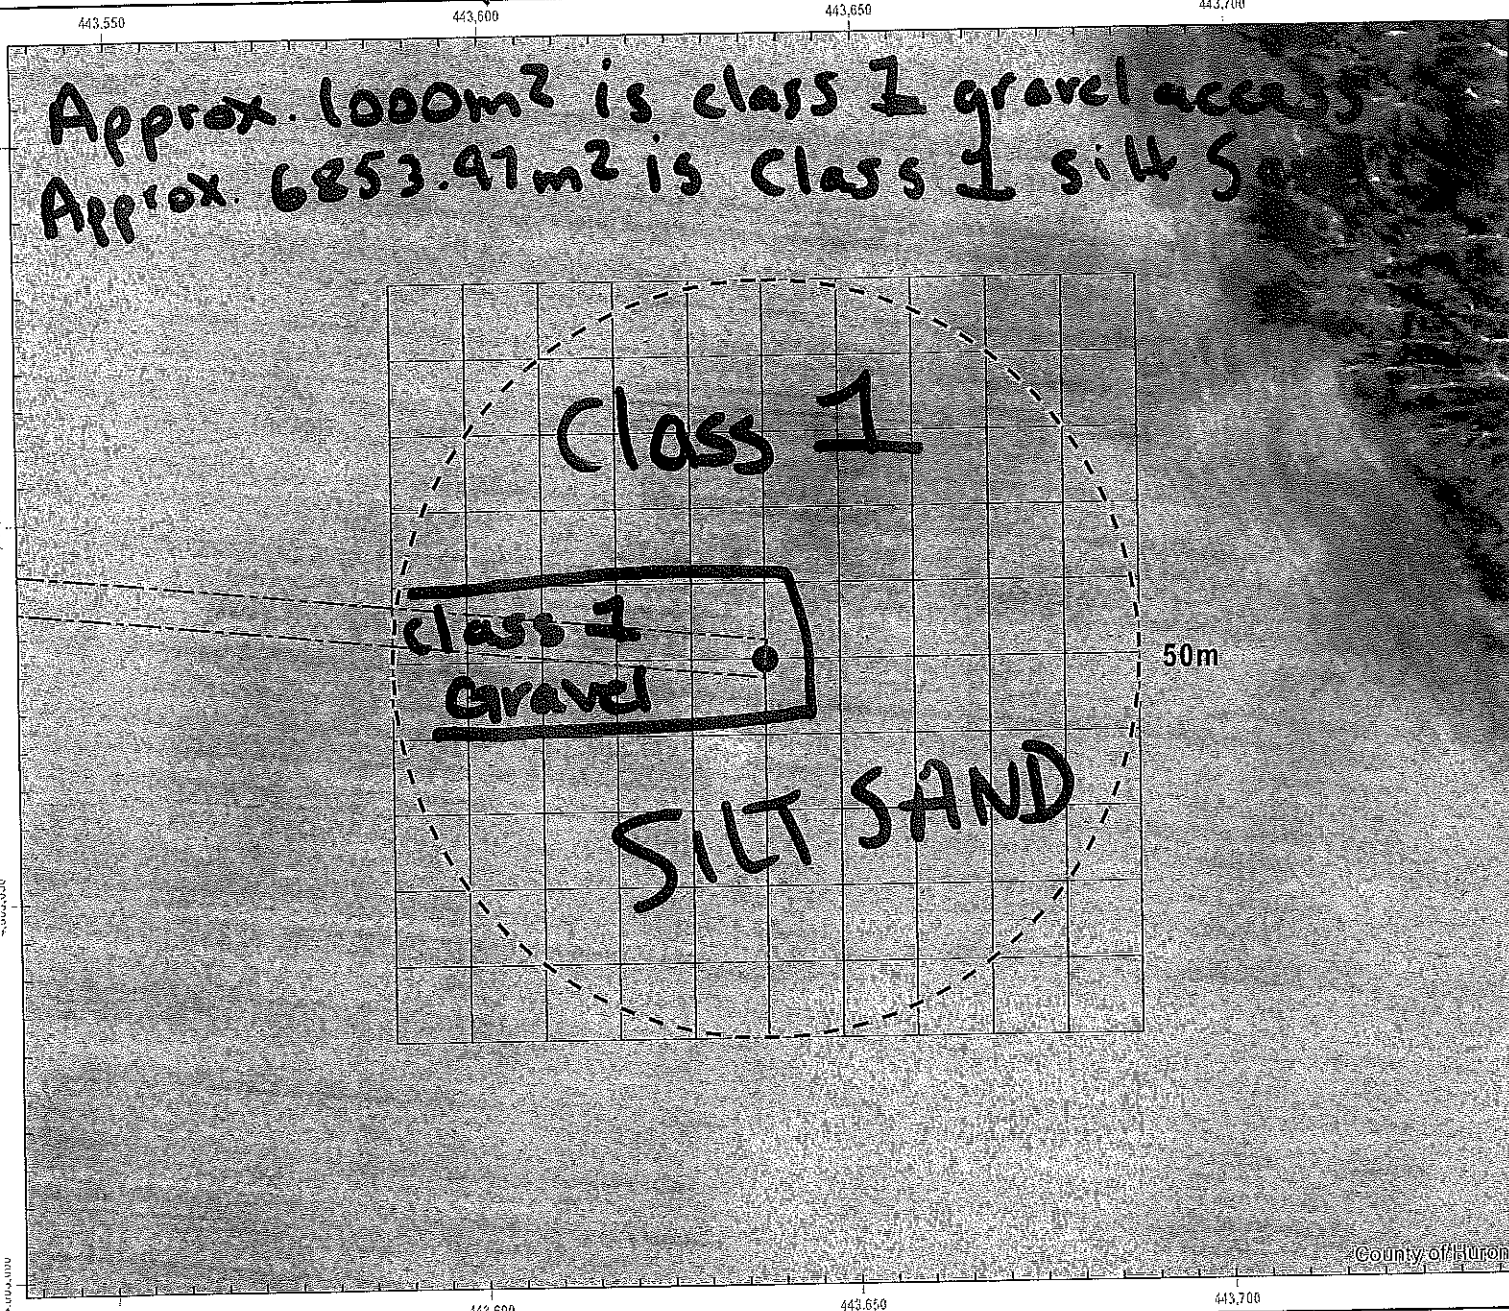 443,550 443,600 443,650 443,700
Approx. 1000m² is class 1 gravel access
Approx. 6853.97m² is Class 1 silt
Class 1
class 1
Gravel
50m
SILT SAND
County of Huron
443,600 443,650 443,700